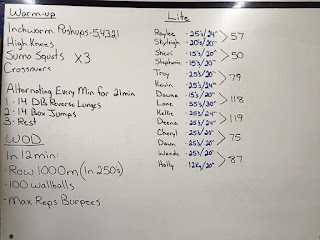 Warm-up
Inchworm Pushups-5,4,3,2,1
High Knees
Sumo Squats x3
Crossovers
Alternating Every Min for 21min
1 - 14 DB Reverse Lunges
2 - 14 Box Jumps
3 - Rest
WOD
In 12min:
- Row 1000m (In 250's)
- 100 wallballs
- Max Reps Burpees
Lite
Raylee - 25's/24"
Skyleigh - 20's/20"
57
Sheri - 15's/20"
Stephanie - 15's/20"
50
Troy - 25's/24"
Kevin - 25's/24"
79
Dauna - 15's/20"
Lane - 55's/30"
118
Kellie - 25's/24"
Deena - 25's/24"
119
Cheryl - 25's/20"
Dawn - 25's/20"
75
Wanda - 25's/20"
Holly - 12Kg/20"
87